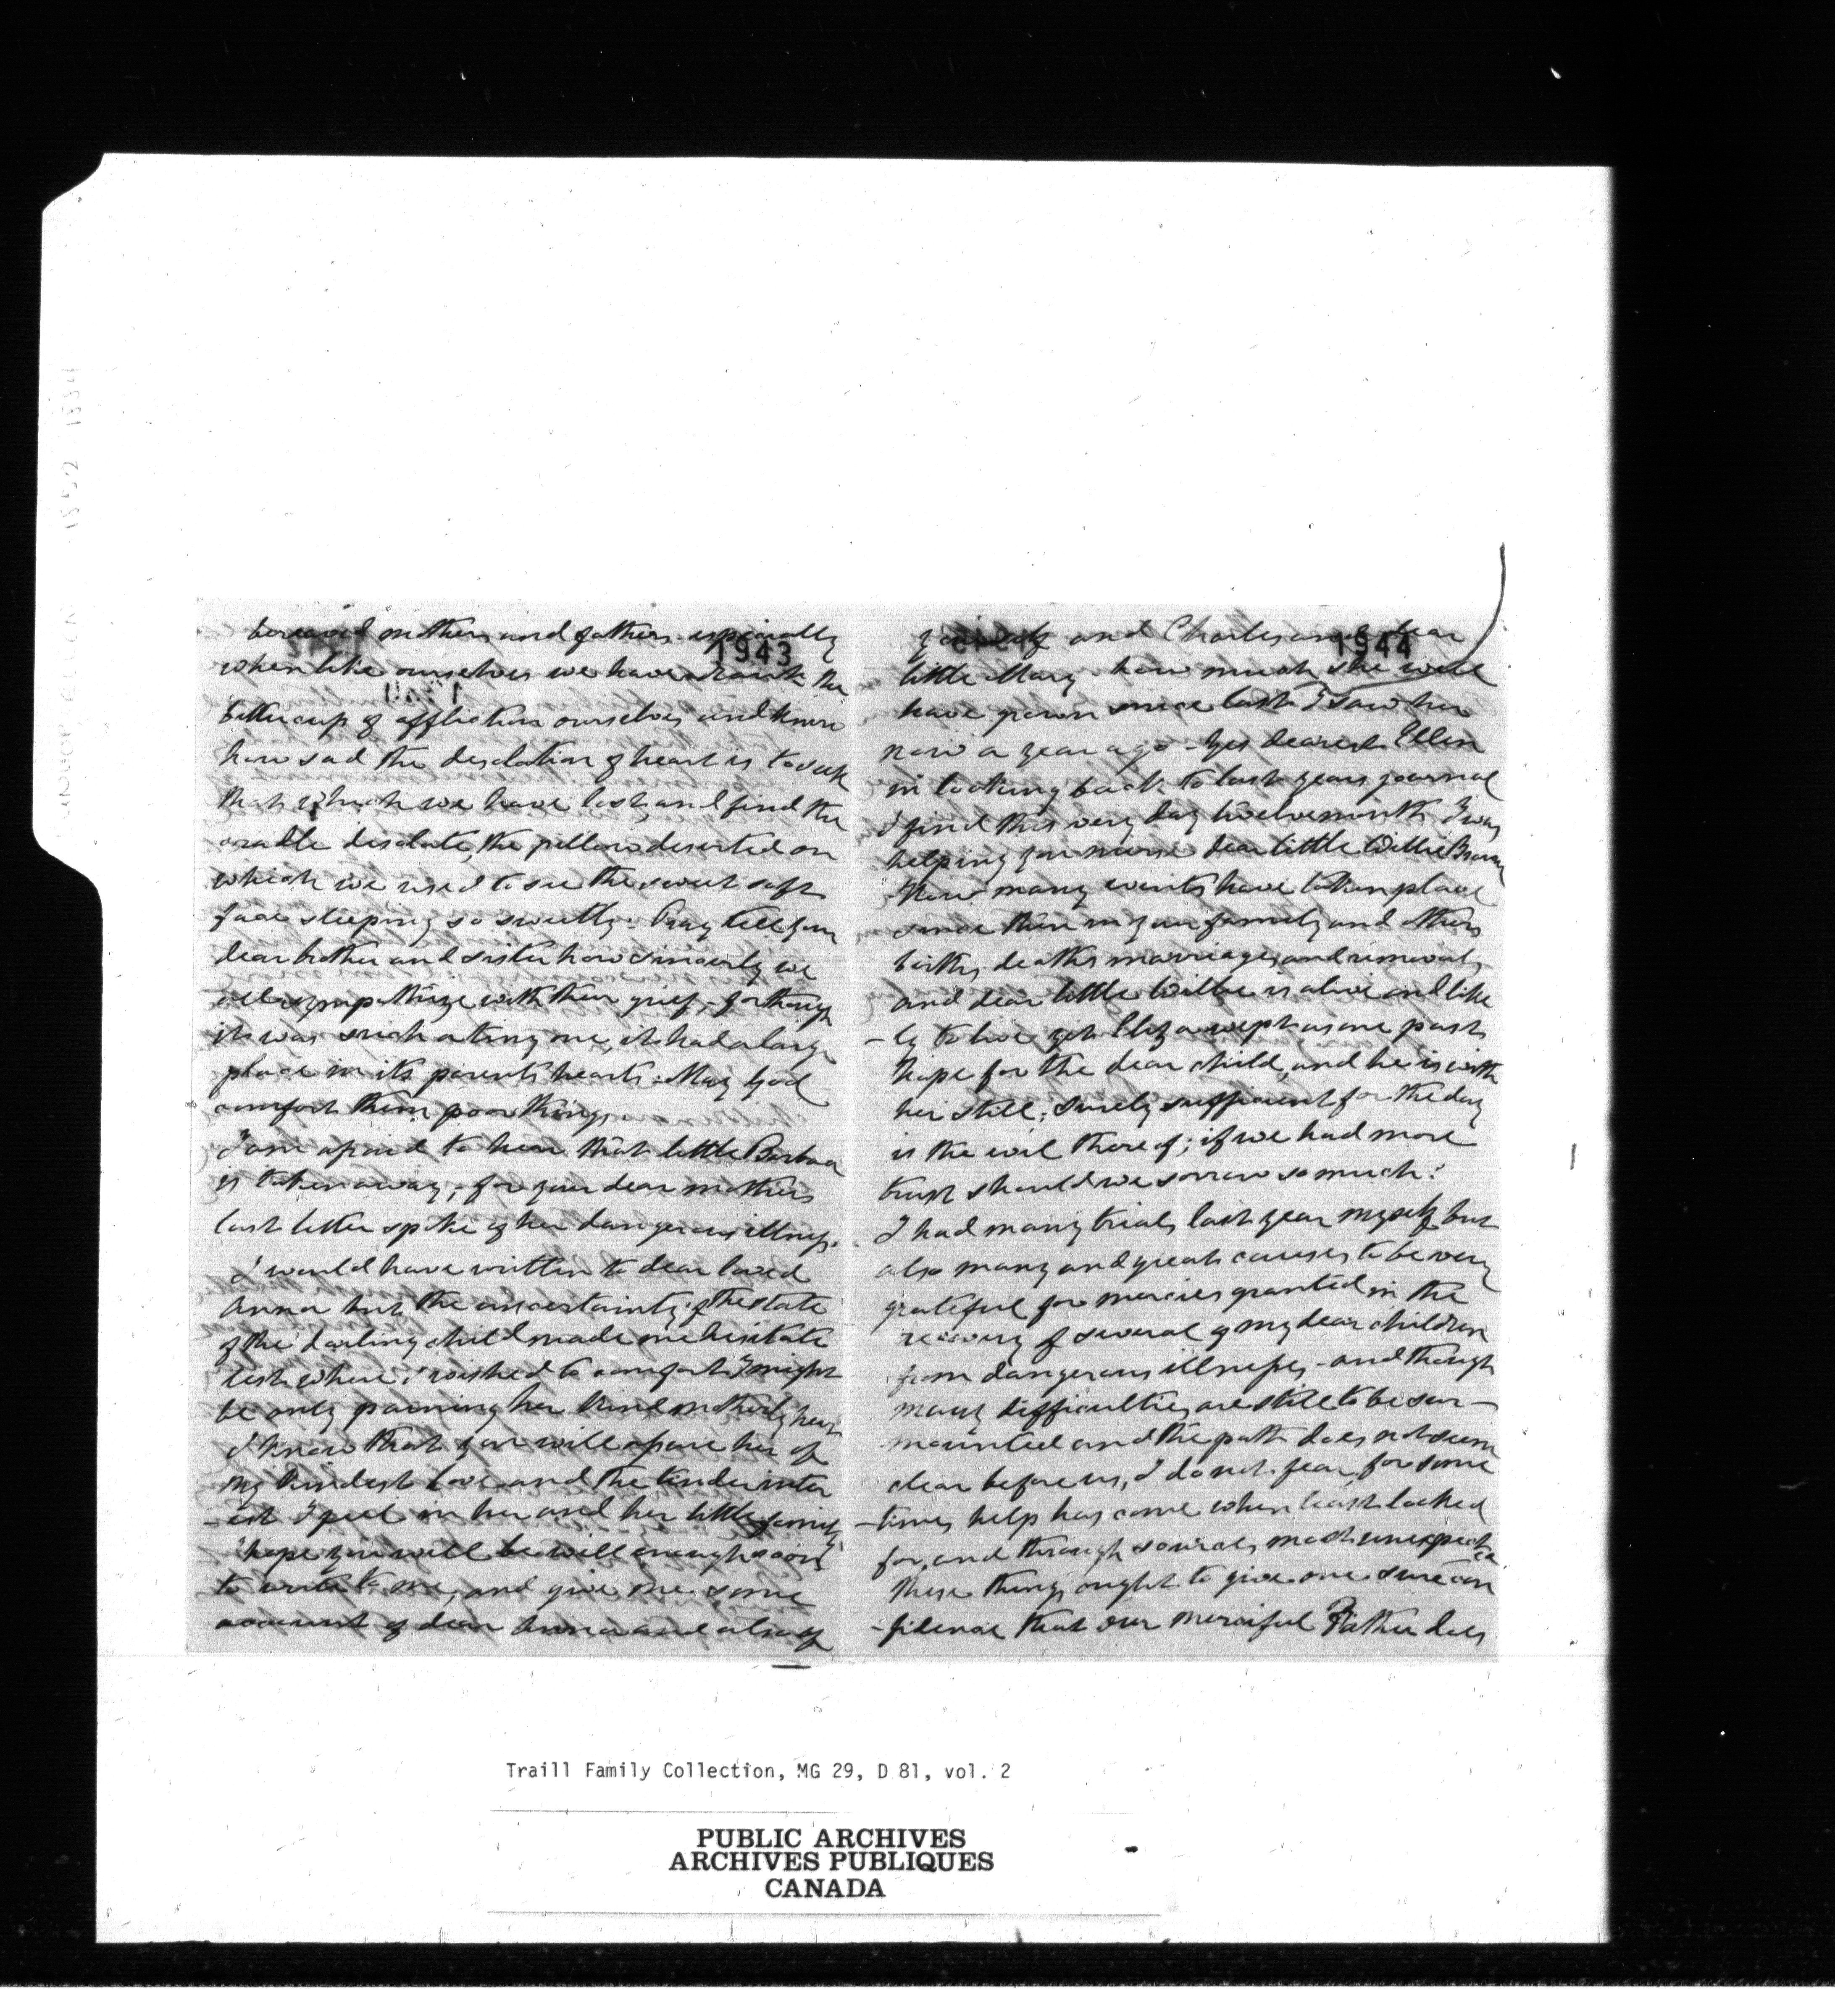 1943
bereaved mothers and fathers especially
when like ourselves we have drank the
bitter cup of affliction ourselves and know
how sad the desolation of heart is to seek
that which we have lost, and find the
cradle desolate, the pillow deserted on
which we used to see the sweet soft
face sleeping so sweetly - Pray tell your
dear brother and sister how sincerely we
all sympathize with their grief, for though
it was such a tiny one, it had a large
place in its parents hearts. May God
comfort them poor things
I am afraid to hear that little Barbara
is taken away, for your dear mothers
last letter spoke of her dangerous illness.
I would have written to dear loved
Anna but the uncertainty of the state
of the darling child made me hesitate
lest where I wished to comfort I might
be only paining her kind motherly heart
I know that you will assure her of
my kindest love and the tender inter
-est I feel in her and her little family
I hope you will be well enough soon
to write to me, and give me some
account of dear Anna and also of
1944
yourself and Charles and dear
little Mary - how much she will
have grown since last I saw her
now a year ago - Yes dearest Ellen
in looking back to last years journal
I find this very day twelvemonth I was
helping you nurse dear little Willie Brown
How many events have taken place
since then in your family and others
births, deaths marriages and removals
and dear little Willie is alive and like
-ly to live yet Eliza wept as one past
hope for the dear child, and he is with
her still; surely sufficient for the day
is the evil thereof; if we had more
trust should we sorrow so much?
I had many trials last year myself but
also many and great causes to be very
grateful for mercies granted in the
recovery of several of my dear children
from dangerous illnesses - and though
many difficulties are still to be sur-
mounted and the path does not seem
clear before us, I do not fear, for some
-times help has come when least looked
for, and through sources most unexpected
these things ought to give one sure con
-fidence that our merciful Father does
Traill Family Collection, MG 29, D 81, vol. 2
PUBLIC ARCHIVES
ARCHIVES PUBLIQUES
CANADA